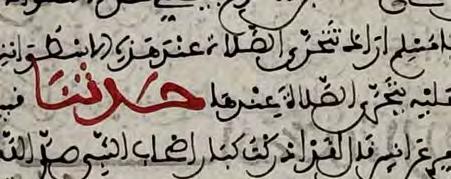 مسلم اراك تتحرى الصلاة عند هذه الاسطوانة
عليه يتحرى الصلاة عندها حدثنا
عن انس قال لقد ادركت كبار اصحاب النبي صلى الله